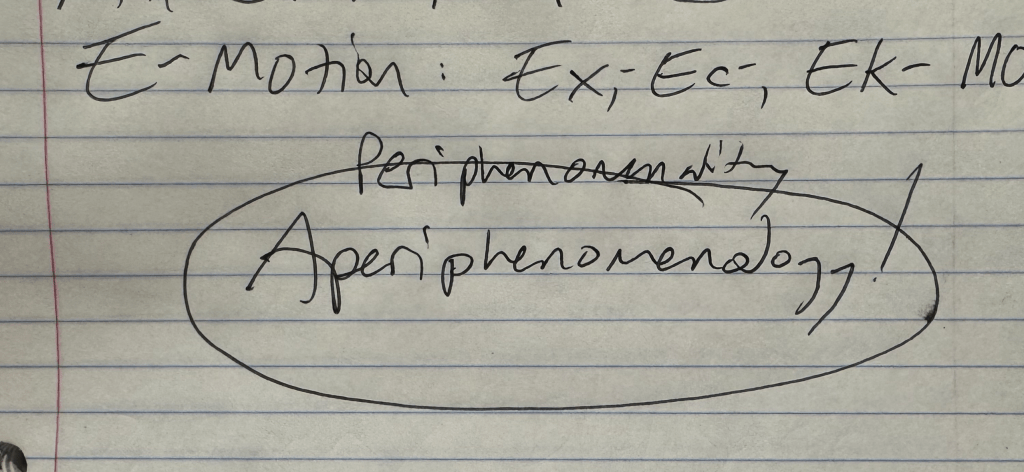 E-Motion: Ex-, Ec-, Ek- Mo
Periphenomenality
Aperiphenomenology!